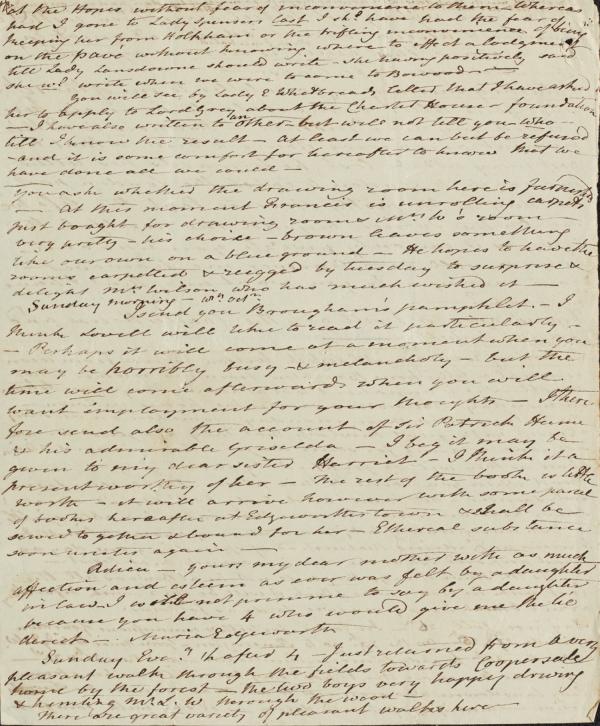 at the Hopes without fear of inconvenience to them. Whereas
had I gone to Lady Spencers last I shd. have had the fear of
keeping her from Holkham or the trifling inconvenience of being
on the pavé without knowing where to effect a lodgment
till Lady Lansdowne should write - she having positively said
she wd. write when we were to come to Bowood -
You will see by Lady E Whitbreads letter that I have asked
her to apply to Lord Grey about the Charter House foundation
- I have also written to an other - but will not tell you who -
till I know the result - At least we can but be refused
- and it is some comfort for hereafter to know that we
have done all we could -
You ask whether the drawing room here is furnishd.
- At this moment Francis is unrolling carpets
just bought for drawing room & Mrs. W's room -
very pretty - his choice - brown leaves something
like our own on a blue ground - He hopes to have the
rooms carpetted & rugged by tuesday to surprise &
delight Mrs Wilson who has much wished it -
Sunday morning - Octr.
I send you Brougham's pamphlet. - I
think Lovell will like to read it particularly -
- Perhaps it will come at a moment when you
may be horribly busy - & melancholy - but the
time will come afterwards when you will
want employment for your thoughts - I there
fore send also the account of Sir Patrick Hume
& his admirable Griselda - I beg it may be
given to my dear sister Harriet - I think it a
present worthy of her - The rest of the book is little
worth - it will arrive however with some parcel
of books hereafter at Edgeworthstown & shall be
sewed together & bound for her - Ethereal substance
soon unites again -
Adieu - yours my dear mother with as much
affection and esteem as ever was felt by a daughter
in law. I will not presume to say by a daughter
because you have 4 who would give me the lie
direct - Maria Edgeworth
Sunday Eve.g half 4 - Just returned from a very
pleasant walk through the fields towards Coopersale
home by the forest - the two boys very happy driving
& hunting Mr. L. W through the wood -
There are great variety of pleasant walks here